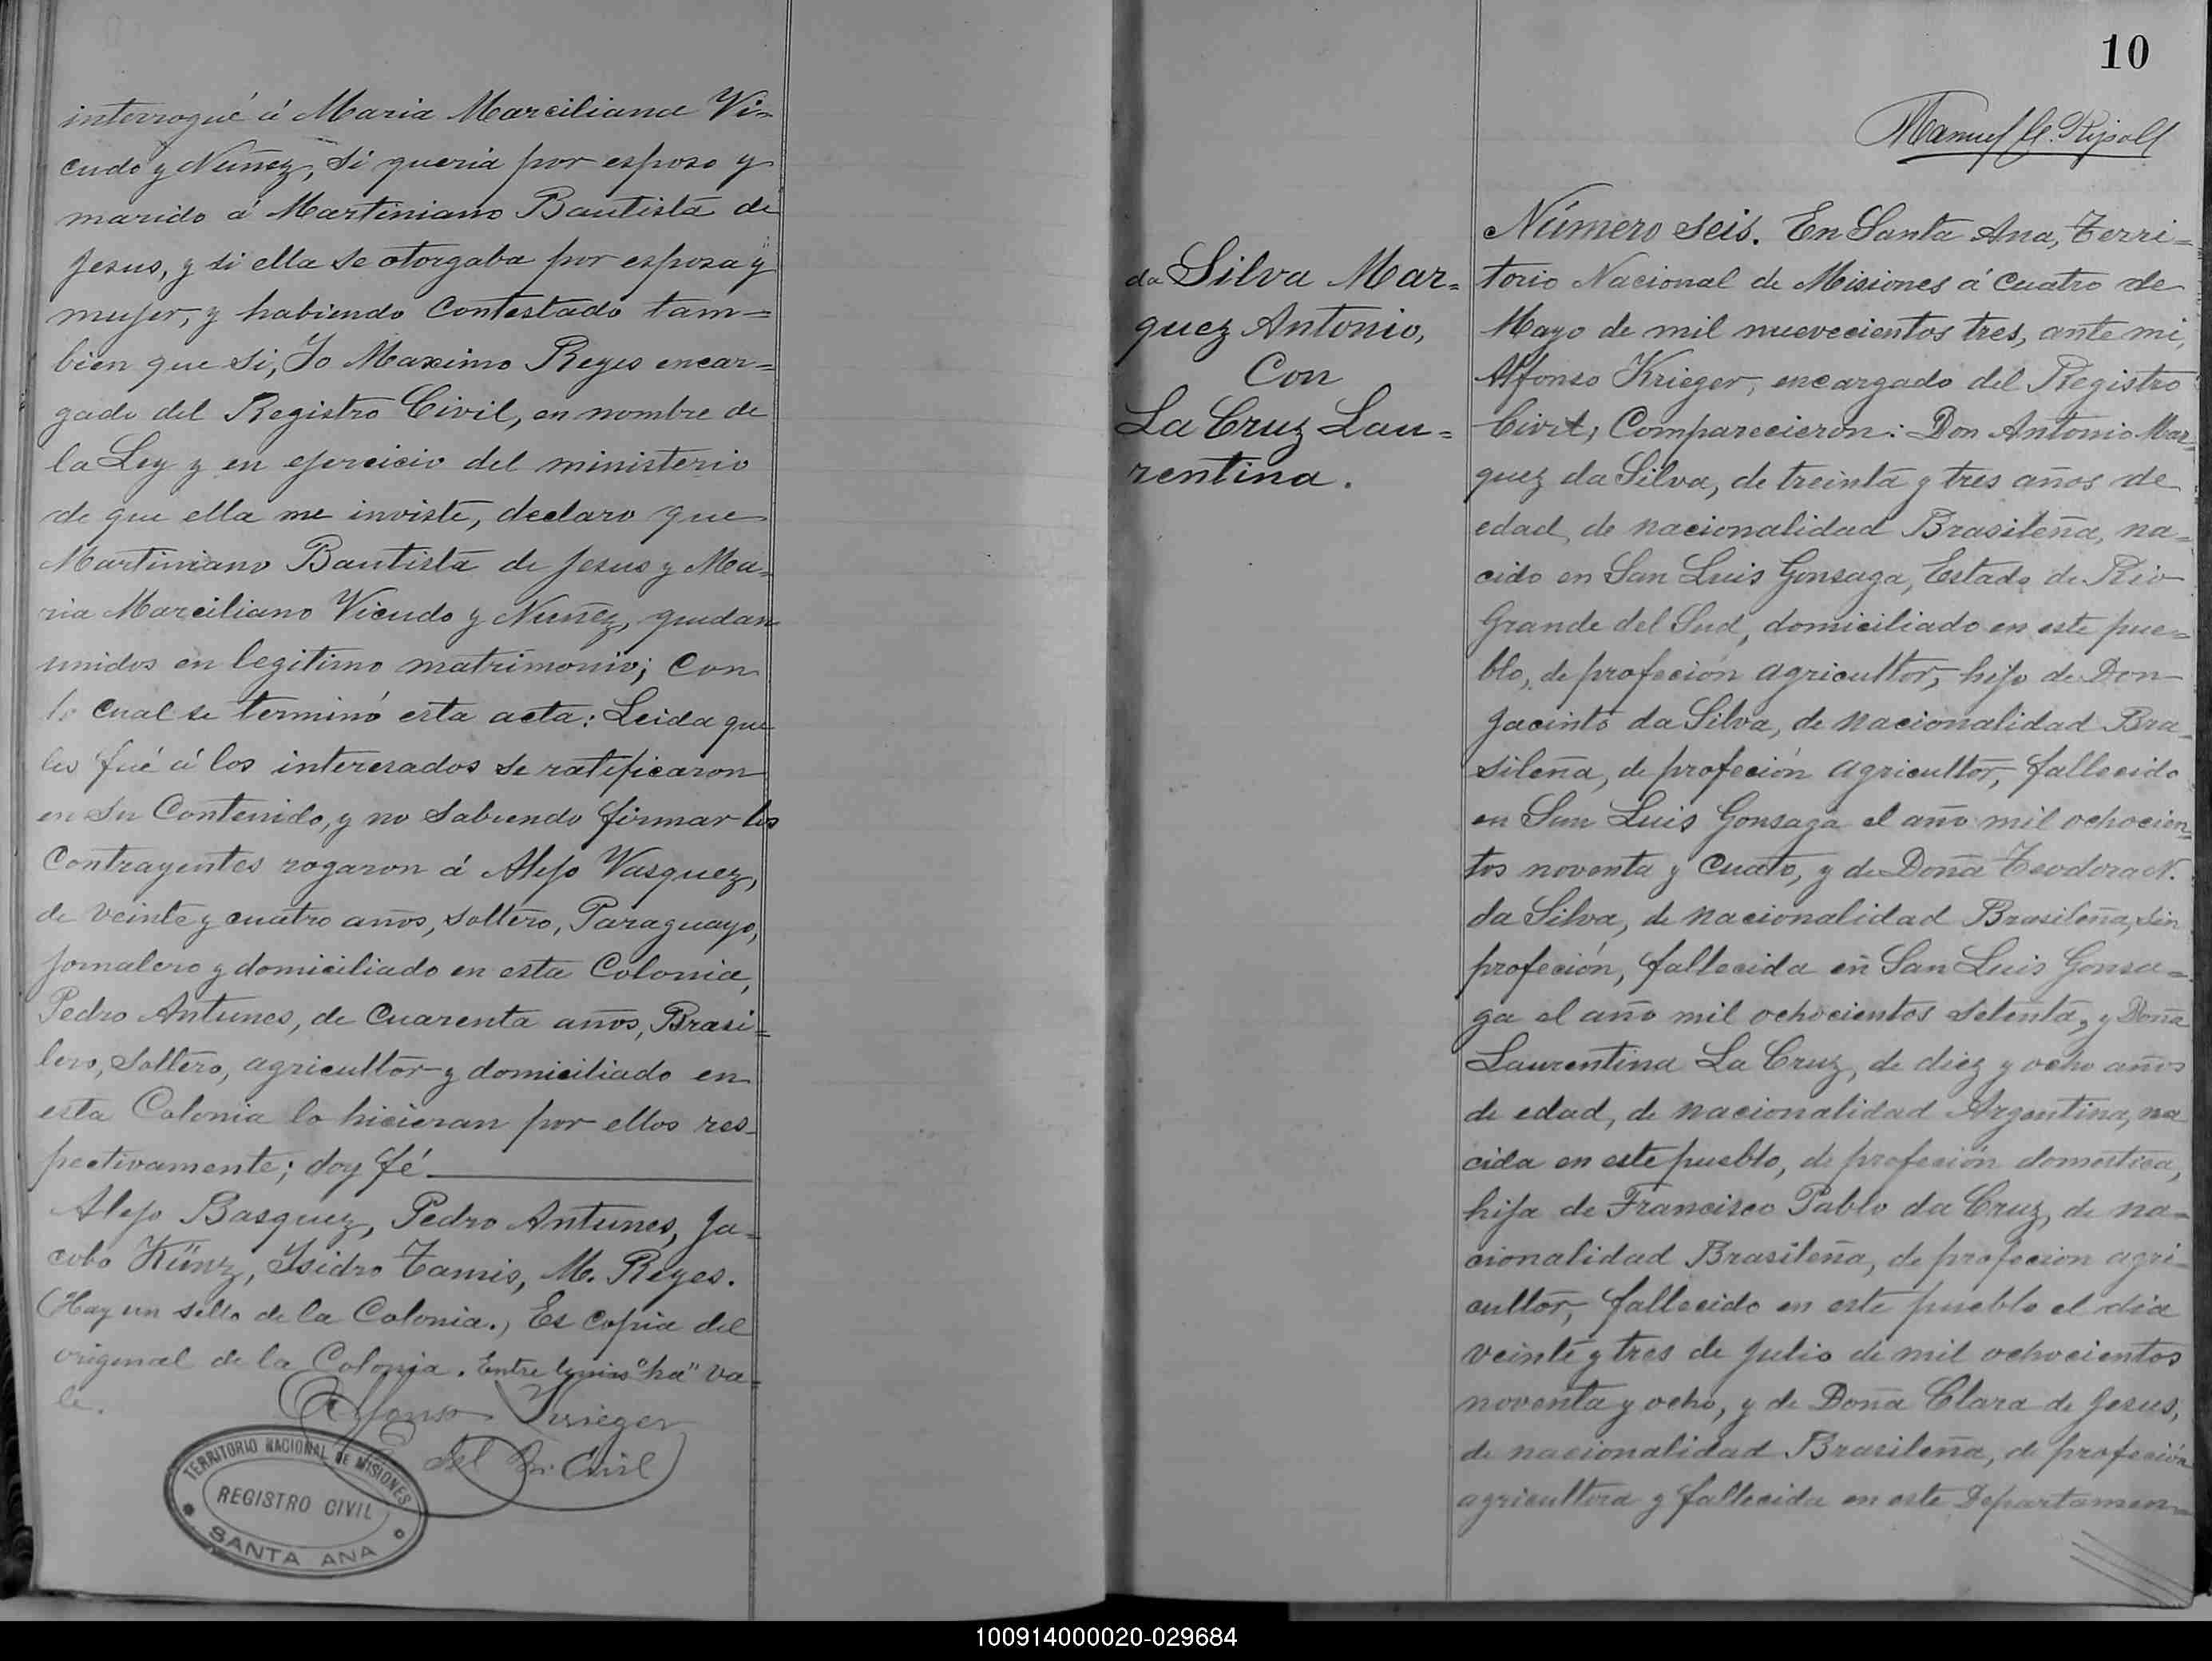 interrogué á Maria Marciliana Vi=
cudo y Nuñez, si queria por esposo y
marido á Martiniano Bautista de
Jesus, y si ella se otorgaba por esposa y
mujer, y habiendo Contestado tam=
bien que si, Yo Maximo Reyes encar=
gado del Registro Civil, en nombre de
la Ley y en ejercicio del ministerio
de que ella me inviste, declaro que
Martiniano Bautista de Jesus y Ma=
ria Marciliano Vicudo y Nuñez, quedan
unidos en legitimo matrimonio; Con
lo cual se terminó esta acta: Leida que
les fué á los interesados se ratificaron
en su Contenido, y no Sabiendo firmar los
Contrayentes rogaron á Alejo Vasquez,
de veinte y cuatro años, soltero, Paraguayo,
jornalero y domiciliado en esta Colonia,
Pedro Antunes, de Cuarenta años, Brasi=
lero, Soltero, agricultor y domiciliado en
esta Colonia lo hicieran por ellos res=
pectivamente; doy fé
Alejo Basquez, Pedro Antunes, Ja=
cobo Künz, Isidro Tamis, M. Reyes.
(Hay un sello de la Colonia.) Es Copia del
original de la Colonia. Entre lineas "ha" va=
le.
Alfonso Krieger
del R. Civil
TERRITORIO NACIONAL DE MISIONES
REGISTRO CIVIL
SANTA ANA
10
Manuel Ripoll
da Silva Mar=
quez Antonio,
Con
La Cruz Lau=
rentina.
Número seis. En Santa Ana, Terri=
torio Nacional de Misiones á Cuatro de
Mayo de mil nuevecientos tres, ante mi,
Alfonso Krieger, encargado del Registro
Civil, Comparecieron: Don Antonio Mar=
quez da Silva, de treinta y tres años de
edad, de nacionalidad Brasileña, na=
cido en San Luis Gonsaga, Estado de Rio
Grande del Sud, domiciliado en este pue=
blo, de profeción agricultor, hijo de Don
Jacinto da Silva, de nacionalidad Bra=
sileña, de profeción agricultor, fallecido
en San Luis Gonsaga el año mil ochocien=
tos noventa y Cuato, y de Doña Teodora N.
da Silva, de nacionalidad Brasileña, sin
profeción, fallecida en San Luis Gonsa=
ga el año mil ochocientos setenta, y Doña
Laurentina La Cruz, de diez y ocho años
de edad, de nacionalidad Argentina, na
cida en este pueblo, de profeción domestica,
hija de Francisco Pablo da Cruz, de na=
cionalidad Brasileña, de profecion agri=
cultor, fallecido en este pueblo el dia
veinte y tres de Julio de mil ochocientos
noventa y ocho, y de Doña Clara de Jesus,
de nacionalidad Brasileña, de profeción
agricultora y fallecida en este Departamen=
100914000020-029684